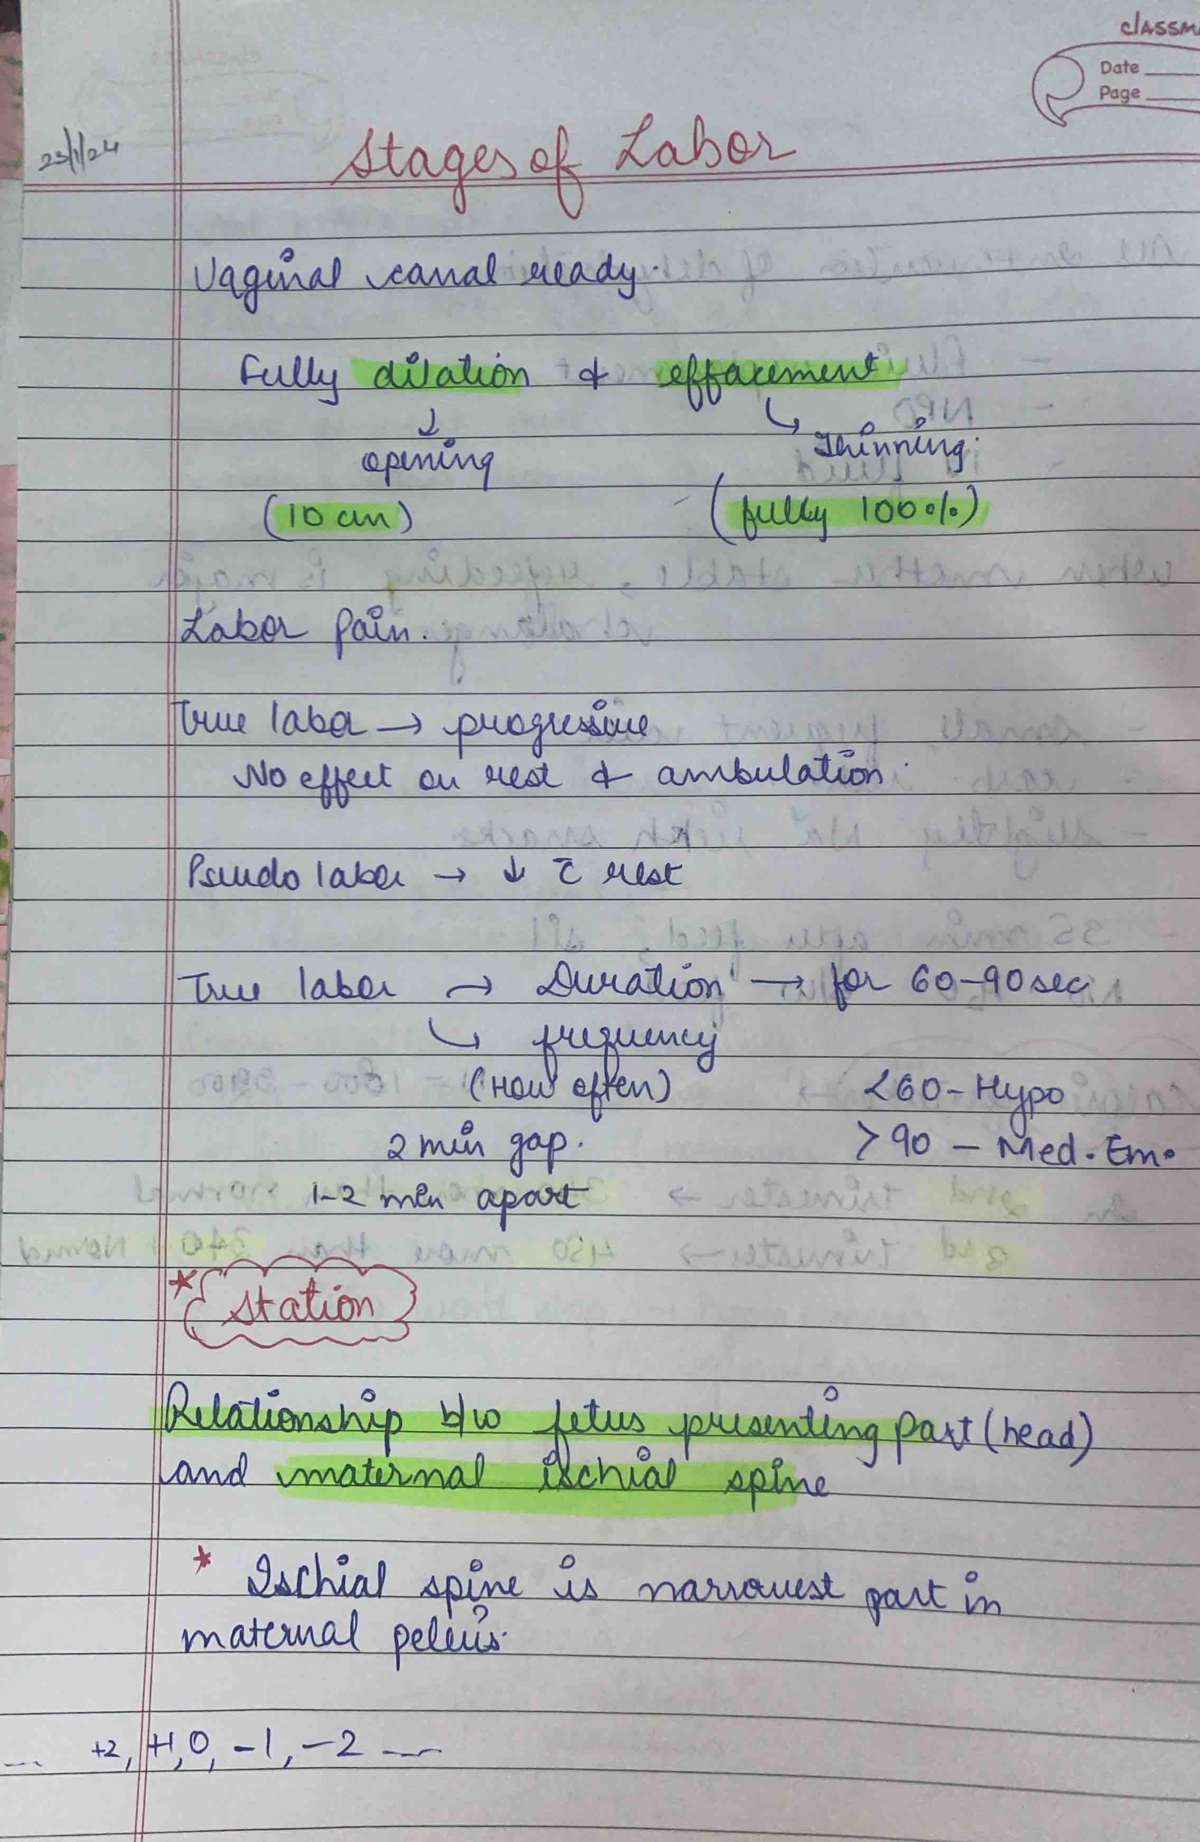 classm
Date
Page
23/1/24
Stages of Labor
Vaginal canal ready.
Fully dilation & effacement
↓ ↳
opening Thinning.
(10 cm) (fully 100%)
Labor Pain.
True labor → progressive
No effect on rest & ambulation.
Pseudo labor → ↓ c̄ rest
True labor → Duration → for 60-90 sec
↳ frequency
(How often) <60 - Hypo
2 min gap. >90 - Med. Em.
1-2 min apart
* Station
Relationship b/w fetus presenting part (head)
and maternal ischial spine
* Ischial spine is narrowest part in
maternal pelvis.
... +2, +1, 0, -1, -2 ---